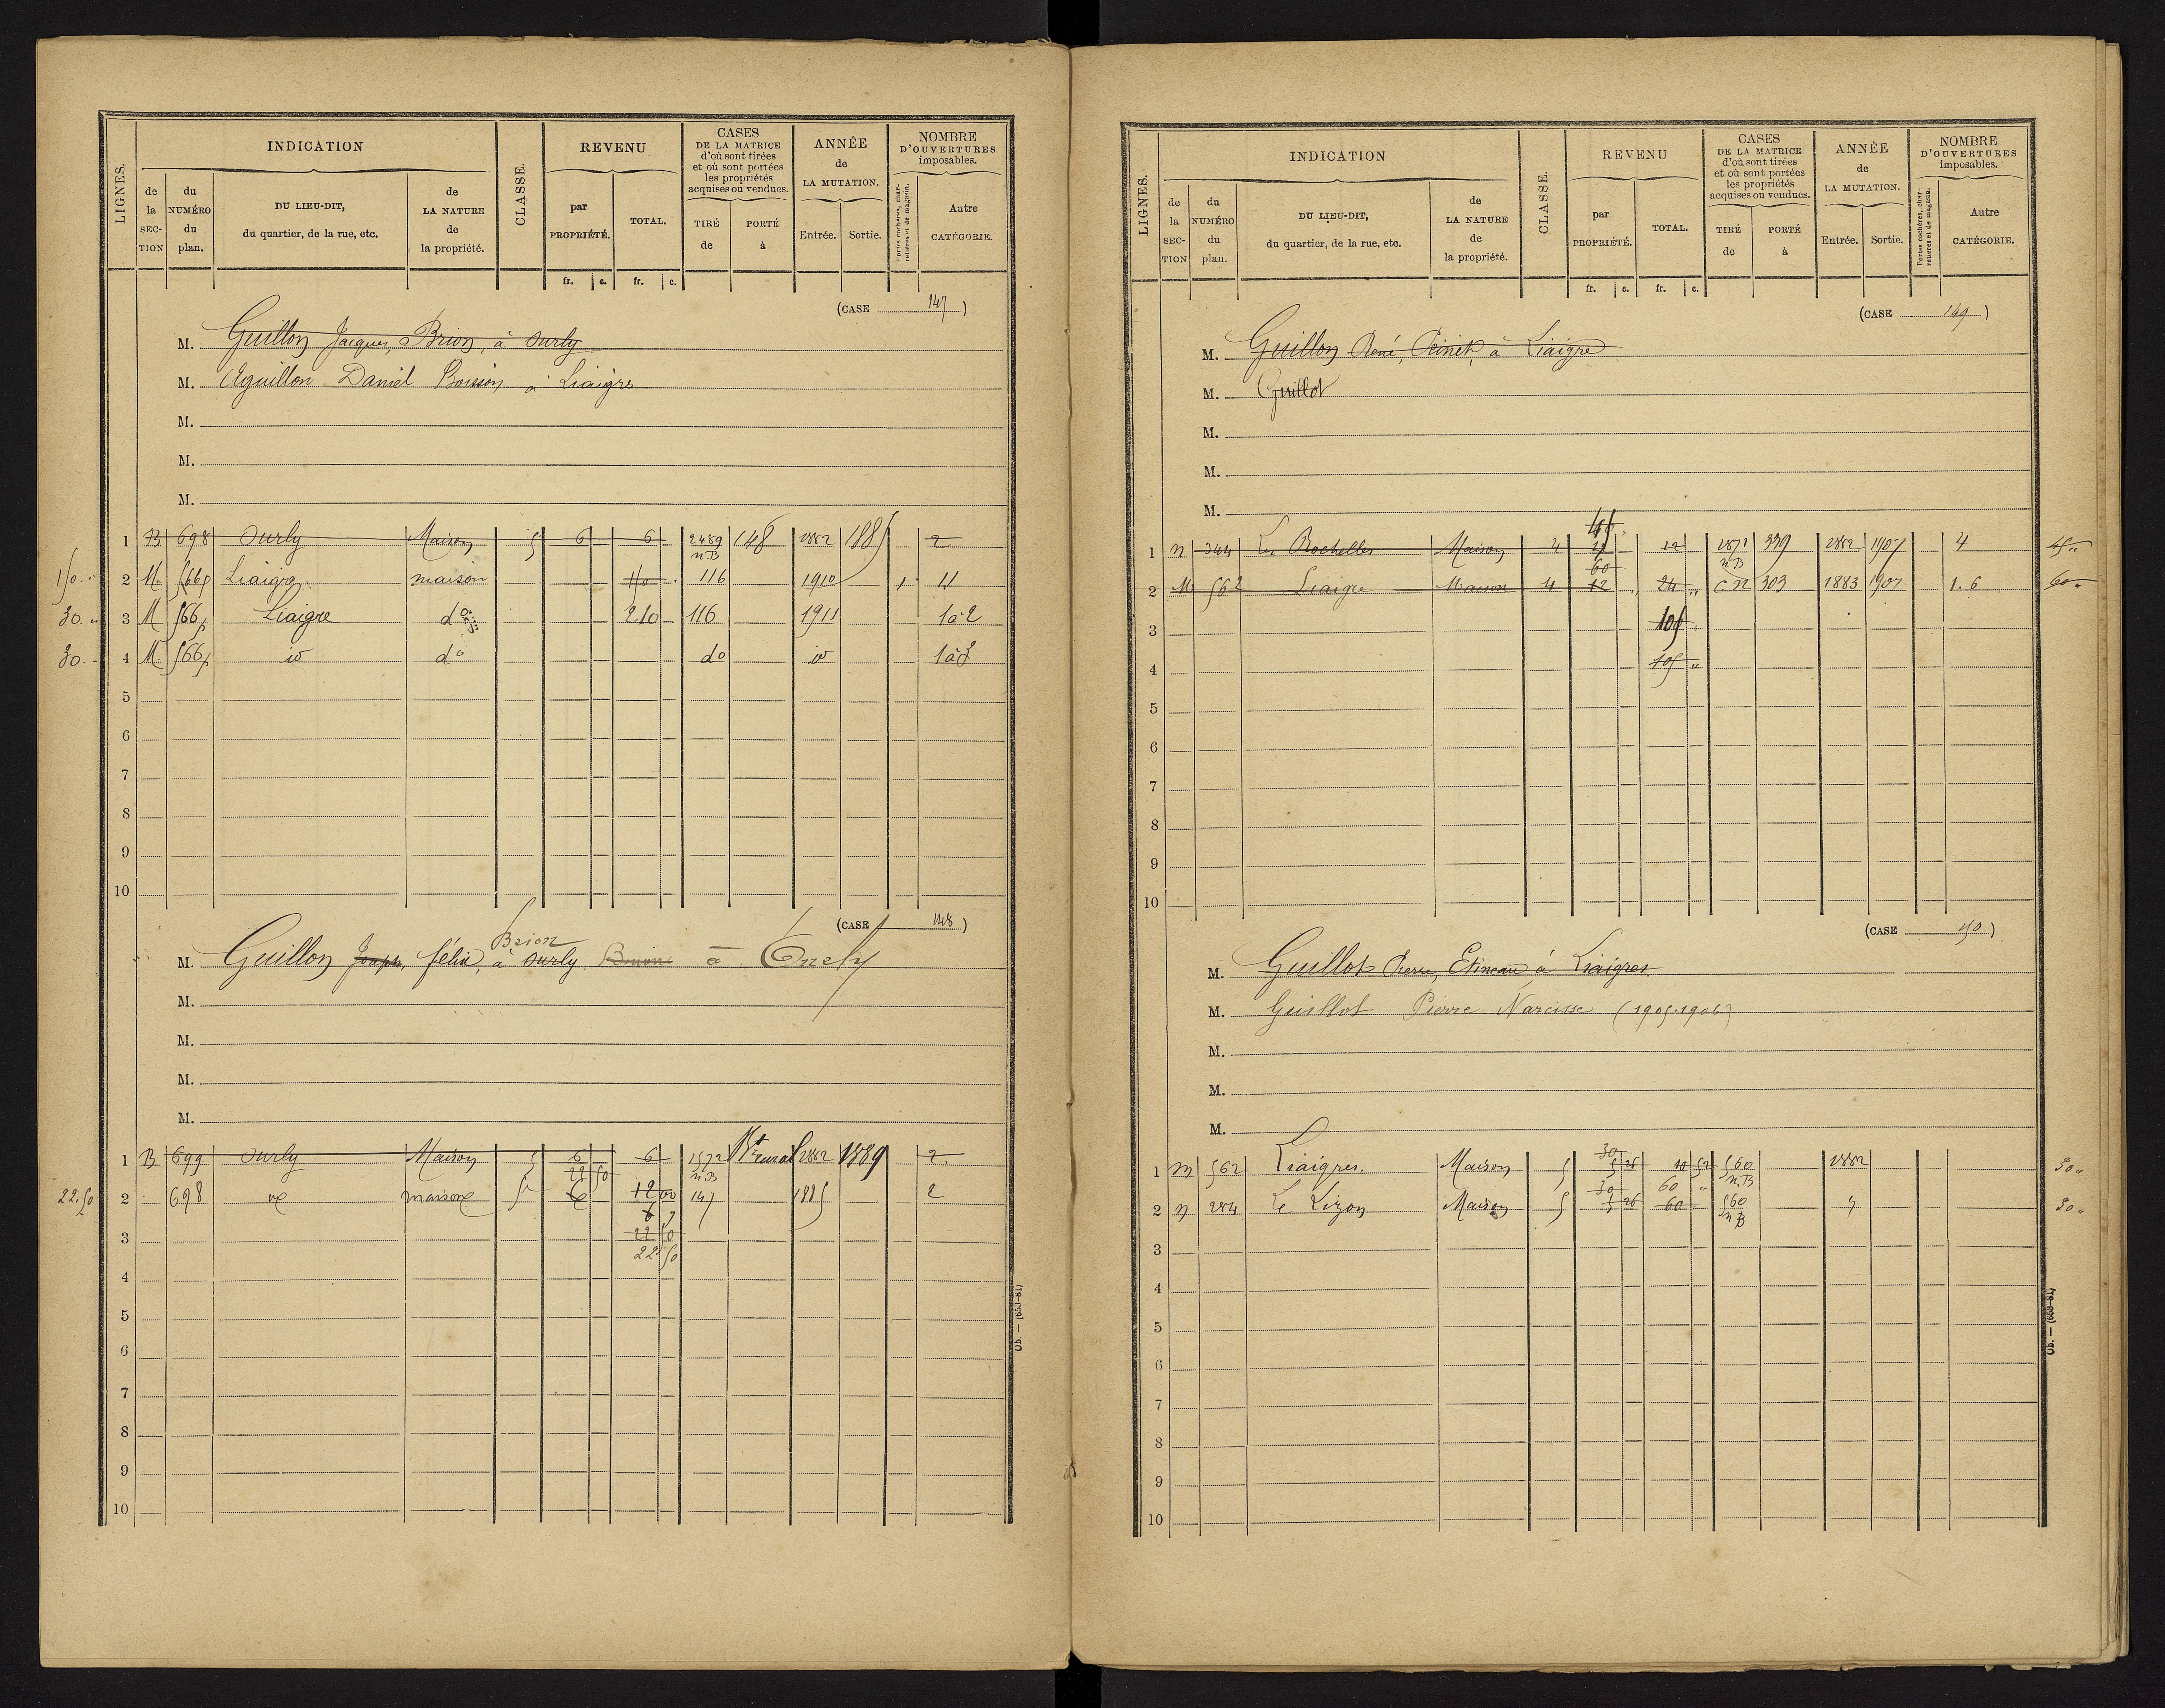 LIGNES.
INDICATION
de la SECTION
du NUMÉRO du plan.
DU LIEU-DIT, du quartier, de la rue, etc.
de LA NATURE de la propriété.
CLASSE.
REVENU
par PROPRIÉTÉ.
TOTAL.
fr. c. fr. c.
CASES DE LA MATRICE d'où sont tirées et où sont portées les propriétés acquises ou vendues.
TIRÉ de
PORTÉ à
ANNÉE de LA MUTATION.
Entrée. Sortie.
NOMBRE D'OUVERTURES imposables.
Portes cochères, charretières et de magasin.
Autre CATÉGORIE.
(CASE 147)
M. Guillon Jacques, Brion, à Surly
M. Aguillon Daniel Bouson à Liaigre
M.
M.
M.
1 B 698 Surly Maison 5 6 6 2489 n.B 148 1882 1885 2
150 2 M. 566p Liaigre maison 116 1910 1 11
30 3 M 566p Liaigre do 210 116 1911 1 à 2
30 4 M. 566p do do 1 à 3
5
6
7
8
9
10
(CASE 148)
Brion
M. Guillon Joseph, félix, à Surly à
M.
M.
M.
M.
1 B 699 Surly Maison 5 6 6 1572 n.B Bt rural 1882 1889 2
22 50
22.50 2 698 maison 5 6 12 00 147 1885 2
6
3 22 50
22 50
4
5
6
7
8
9
10
Ob. — (653-81)
LIGNES.
INDICATION
de la SECTION
du NUMÉRO du plan.
DU LIEU-DIT, du quartier, de la rue, etc.
de LA NATURE de la propriété.
CLASSE.
REVENU
par PROPRIÉTÉ.
TOTAL.
fr. c. fr. c.
CASES DE LA MATRICE d'où sont tirées et où sont portées les propriétés acquises ou vendues.
TIRÉ de
PORTÉ à
ANNÉE de LA MUTATION.
Entrée. Sortie.
NOMBRE D'OUVERTURES imposables.
Portes cochères, charretières et de magasin.
Autre CATÉGORIE.
(CASE 149)
M. Guillon René, à Liaigre
M. Guillot
M.
M.
M.
45
1 n 344 Les Rochelles Maison 4 12 1871 n.B 339 1882 1907 4 45
60
2 M 562 Liaigre Maison 4 12 24 C.N 303 1883 1907 1.6 60
3 105
4 105
5
6
7
8
9
10
(CASE 150)
M. Guillot Pierre, Etineau à Liaigres
M. Guillot Pierre Narcisse (1905.1906)
M.
M.
M.
30
1 m 562 Liaigres. Maison 5 5 26 10 52 560 n.B 1882 30
30 60
2 n 284 Le Lizon Maison 5 5 26 60 560 n.B 30
3
4
5
6
7
8
9
10
Ob. — (653-81)